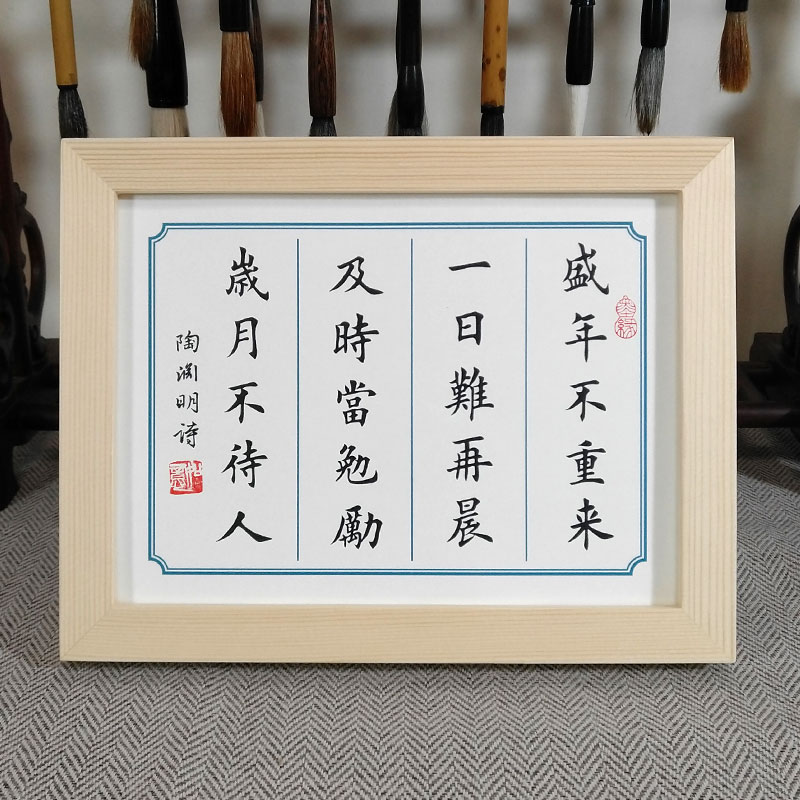 盛年不重来
一日難再晨
及時當勉勵
歳月不待人
陶渊明诗